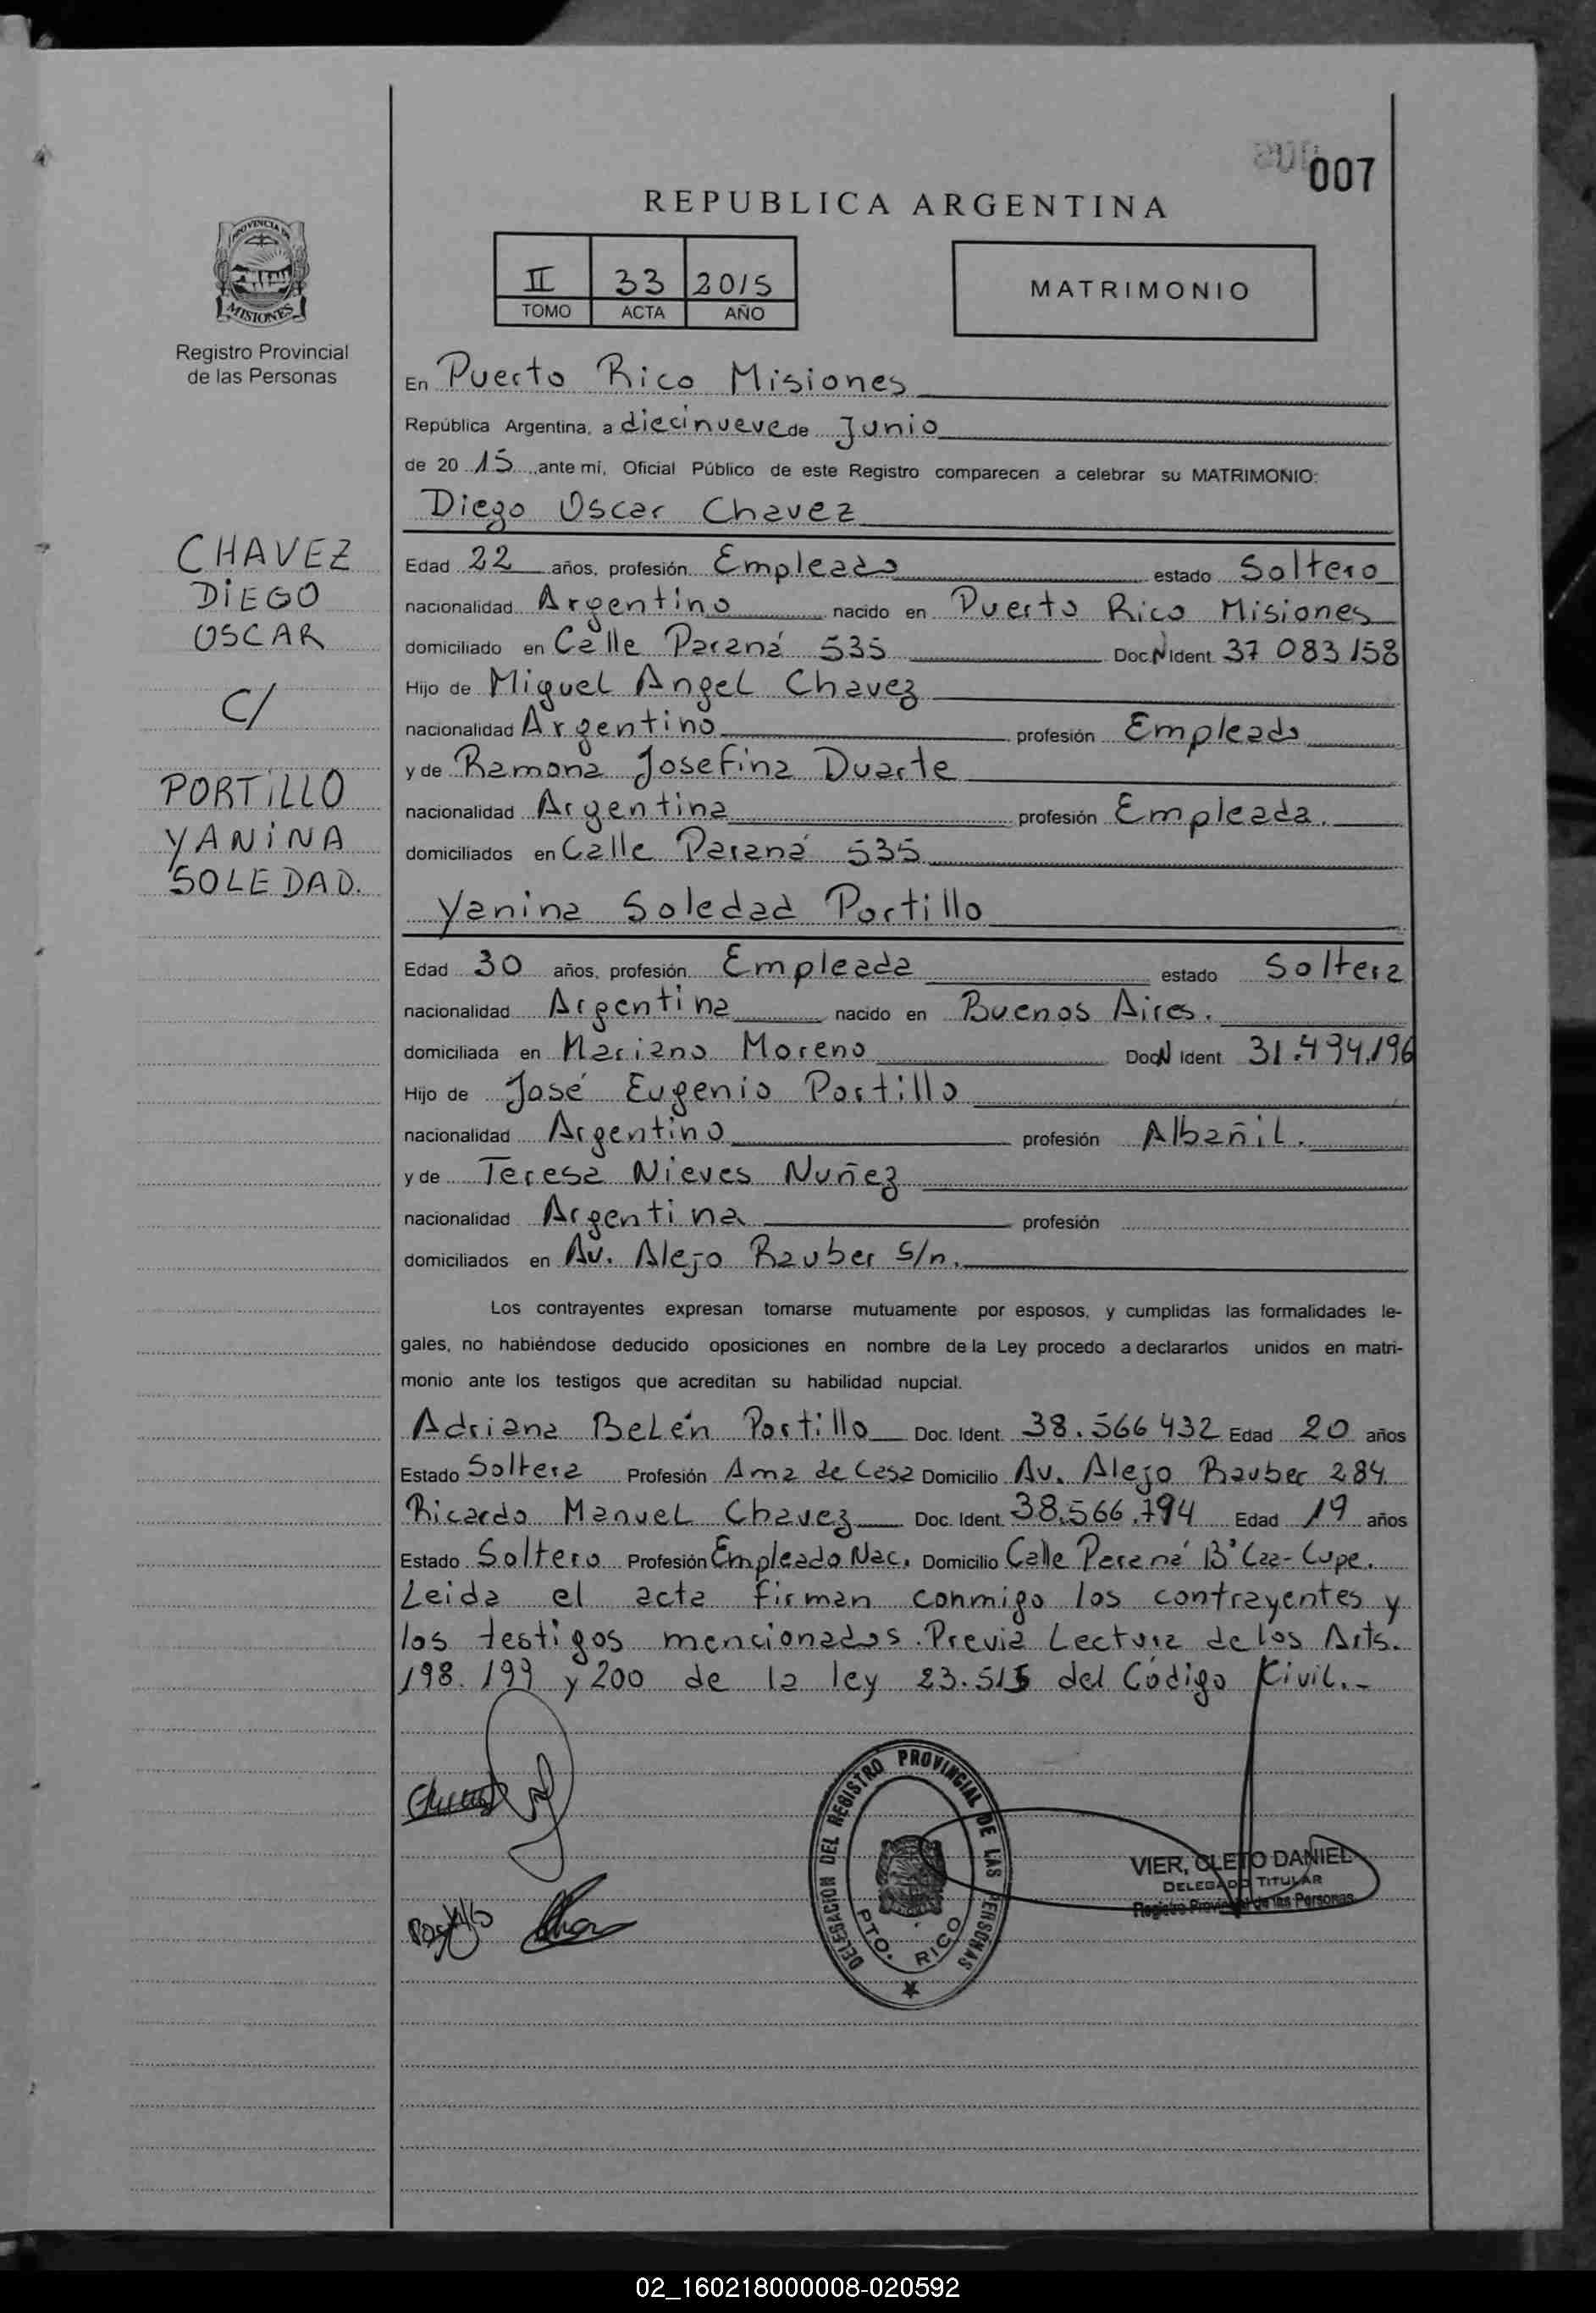 007
REPUBLICA ARGENTINA
PROVINCIA DE
MISIONES
Registro Provincial
de las Personas
II 33 2015
TOMO ACTA AÑO
MATRIMONIO
En Puerto Rico Misiones
República Argentina, a diecinueve de Junio
de 20 15 ante mí, Oficial Público de este Registro comparecen a celebrar su MATRIMONIO:
Diego Oscar Chavez
CHAVEZ
DIEGO
OSCAR
C/
PORTILLO
YANINA
SOLEDAD.
Edad 22 años, profesión Empleado estado Soltero
nacionalidad Argentino nacido en Puerto Rico Misiones
domiciliado en Calle Paraná 535 Doc N Ident. 37 083 158
Hijo de Miguel Angel Chavez
nacionalidad Argentino profesión Empleado
y de Ramona Josefina Duarte
nacionalidad Argentina profesión Empleada.
domiciliados en Calle Paraná 535
Yanina Soledad Portillo
Edad 30 años, profesión Empleada estado Soltera
nacionalidad Argentina nacido en Buenos Aires.
domiciliada en Mariano Moreno Doc N Ident. 31.494.196
Hijo de José Eugenio Portillo
nacionalidad Argentino profesión Albañil.
y de Teresa Nieves Nuñez
nacionalidad Argentina profesión
domiciliados en Av. Alejo Rauber S/n.
Los contrayentes expresan tomarse mutuamente por esposos, y cumplidas las formalidades le-
gales, no habiéndose deducido oposiciones en nombre de la Ley procedo a declararlos unidos en matri-
monio ante los testigos que acreditan su habilidad nupcial.
Adriana Belén Portillo Doc. Ident. 38.566 432 Edad 20 años
Estado Soltera Profesión Ama de Casa Domicilio Av. Alejo Rauber 284.
Ricardo Manuel Chavez Doc. Ident. 38.566.794 Edad 19 años
Estado Soltero Profesión Empleado Nac. Domicilio Calle Paraná B° Caa-Cupe.
Leida el acta firman conmigo los contrayentes y
los testigos mencionados. Previa Lectura de los Arts.
198. 199 y 200 de la ley 23.515 del Código Civil.-
DELEGACION DEL REGISTRO PROVINCIAL DE LAS PERSONAS
PTO. RICO
VIER, CLETO DANIEL
DELEGADO TITULAR
Registro Provincial de las Personas
Portillo
02_160218000008-020592